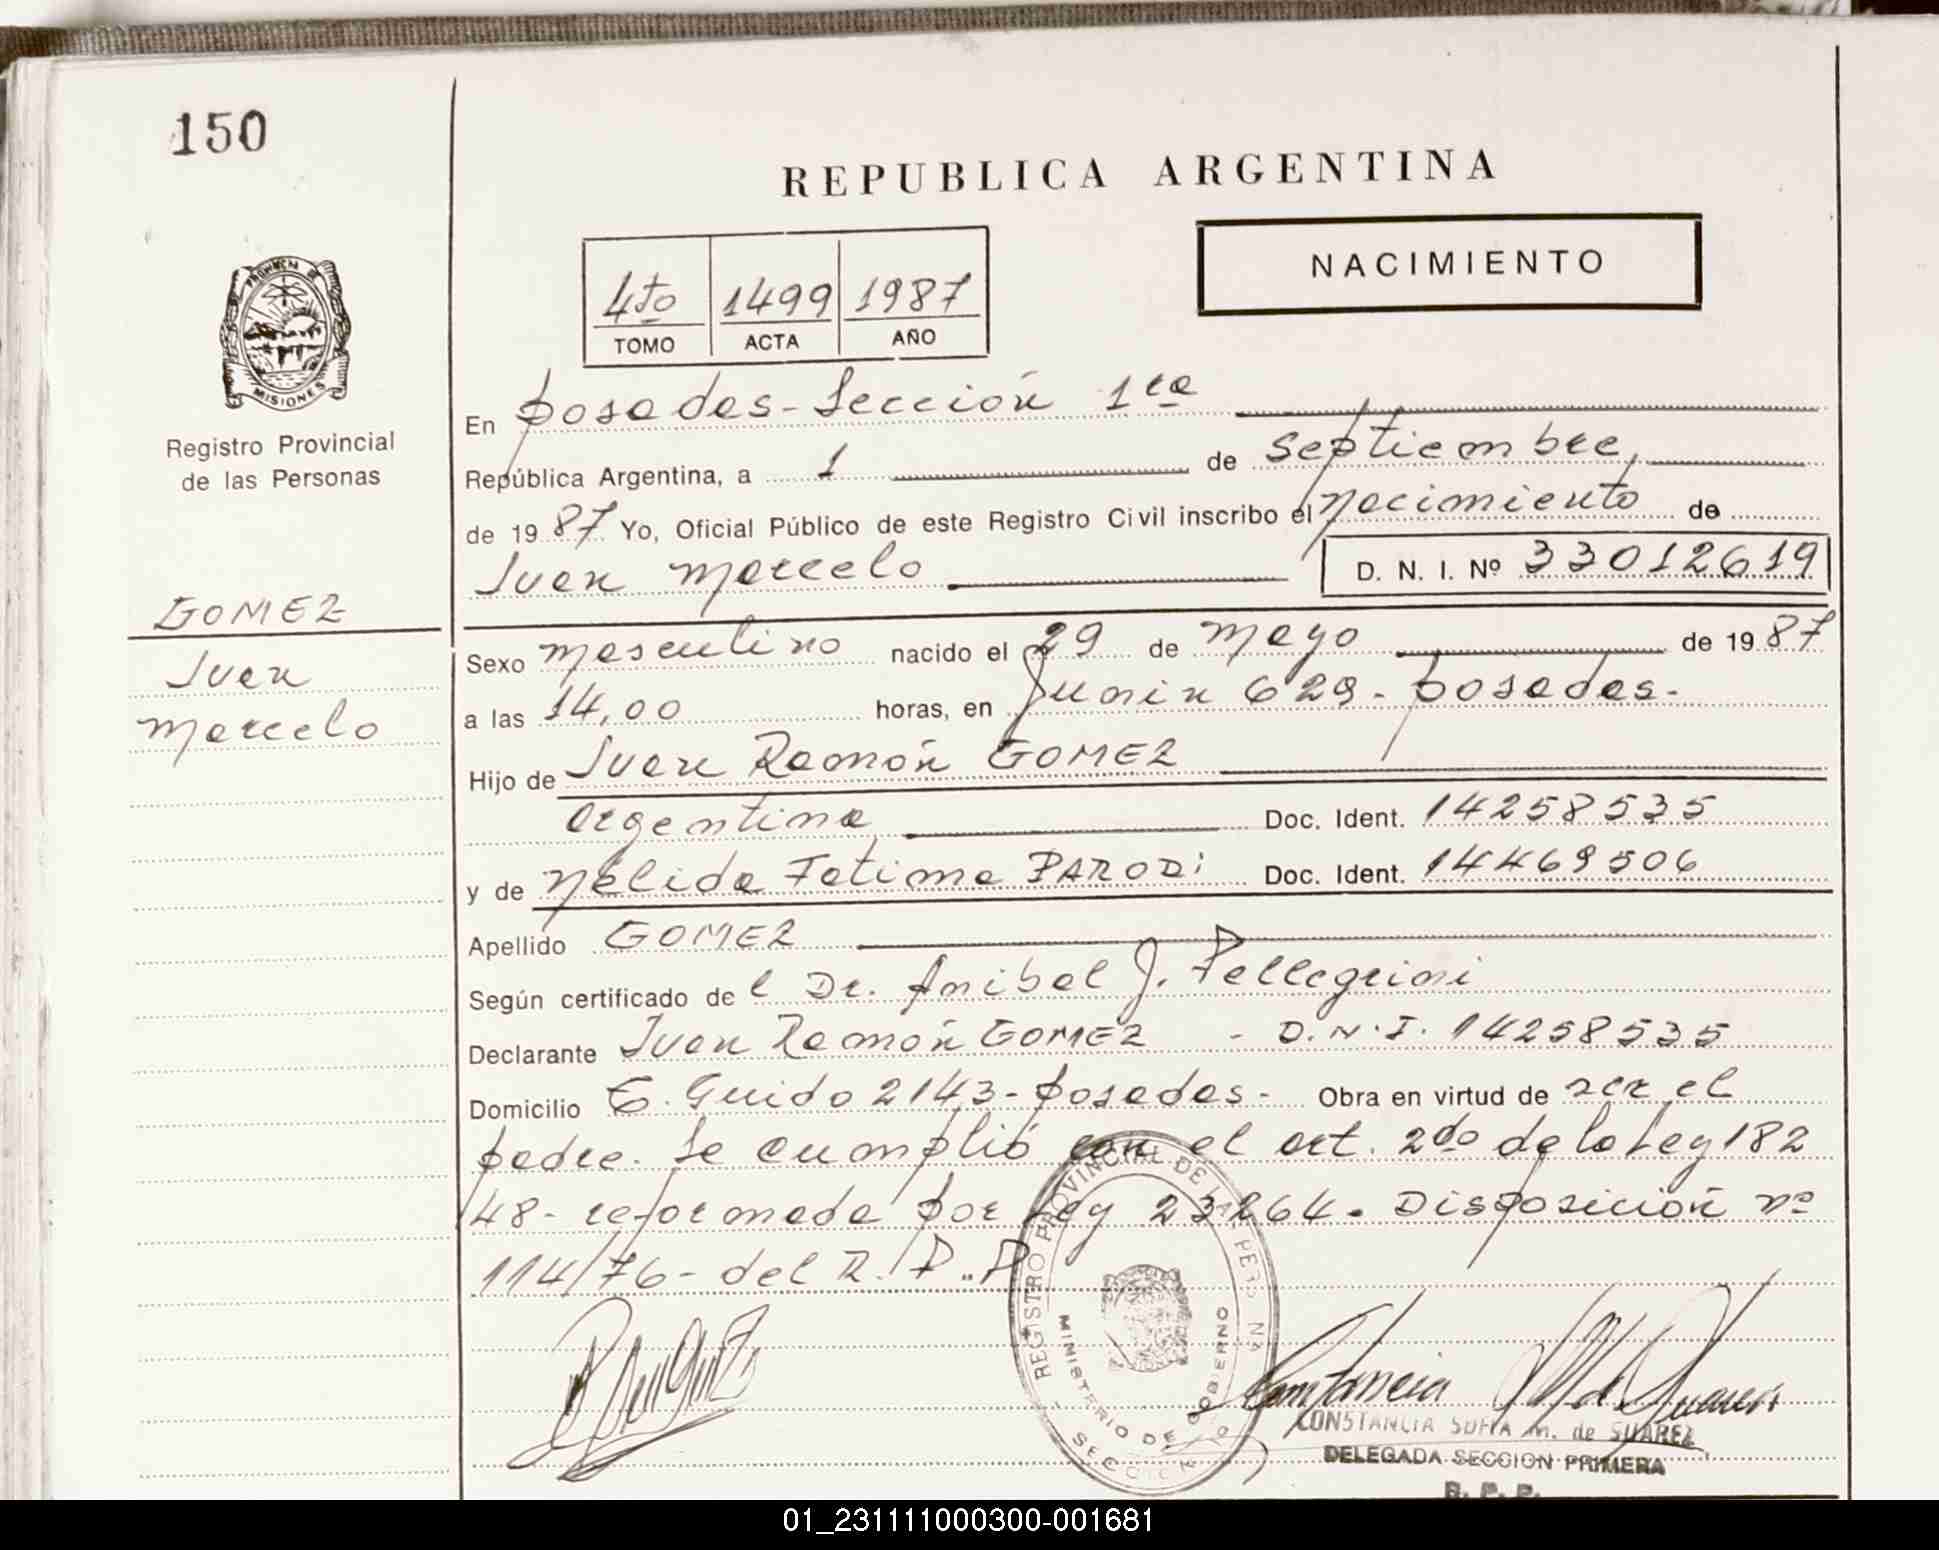 150
REPUBLICA ARGENTINA
4to 1499 1987
TOMO ACTA AÑO
NACIMIENTO
PROVINCIA DE
MISIONES
Registro Provincial
de las Personas
En Posadas - Sección 1ra
República Argentina, a 1 de septiembre,
de 1987 Yo, Oficial Público de este Registro Civil inscribo el nacimiento de
Juan Marcelo D. N. I. Nº 33012619
GOMEZ
Juan
Marcelo
Sexo masculino nacido el 29 de mayo de 1987
a las 14,00 horas, en Junin 629 - Posadas -
Hijo de Juan Ramón GOMEZ
argentina Doc. Ident. 14258535
y de Nélida Fatima PARODi Doc. Ident. 14469506
Apellido GOMEZ
Según certificado del Dr. Anibal J. Pellegrini
Declarante Juan Ramón GOMEZ - D.N.I. 14258535
Domicilio T. Guido 2143 - Posadas - Obra en virtud de ser el
padre. Se cumplió con el art. 2do de la Ley 182
48 - reformada por Ley 23264. Disposición nº
114/76 - del R.P.P
REGISTRO PROVINCIAL DE LAS PERSONAS
MINISTERIO DE GOBIERNO
SECCION
Constancia M. de Suarez
CONSTANCIA SOFIA M. de SUAREZ
DELEGADA SECCION PRIMERA
R. P. P.
01_231111000300-001681